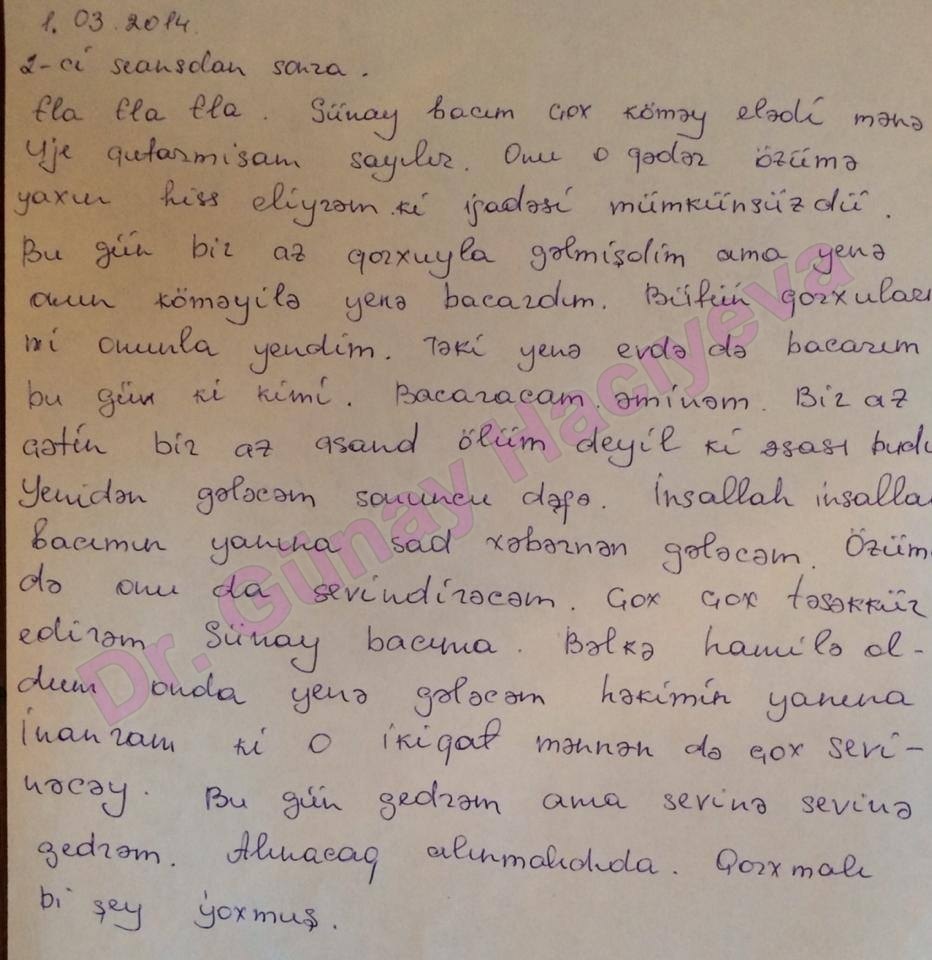 1. 03. 2014.
2-ci seansdan sonra.
Əla Əla Əla. Günay bacım çox kömәy elәdi mәnә
Uje qutarmisam sayılır. Onu o qәdәr özümә
yaxın hiss eliyrәm ki ifadәsi mümkünsüzdü.
Bu gün bir az qorxuyla gәlmişdim ama yenә
onun kömәyilә yenә bacardım. Bütün qorxuları
mi onunla yendim. Tәki yenә evdә dә bacarım
bu gün ki kimi. Bacaracam әminәm. Bir az
çәtin bir az asand ölüm deyil ki әsası budu
Yenidәn gәlәcәm sonuncu dәfә. İnsallah insalla
bacımın yanına sad xәbәrnәn gәlәcәm. Özüm
dә onu da sevindirәcәm. Çox çox tәsәkkür
edirәm Günay bacıma. Bәlkә hamilә ol-
dum onda yenә gәlәcәm hәkimin yanına
İnanram ki o ikiqat mәnnәn dә çox sevi-
nәcәy. Bu gün gedrәm ama sevinә sevinә
gedrәm. Alınacaq alınmalıdıda. Qorxmalı
bi şey yoxmuş.
Dr. Günay Hacıyeva